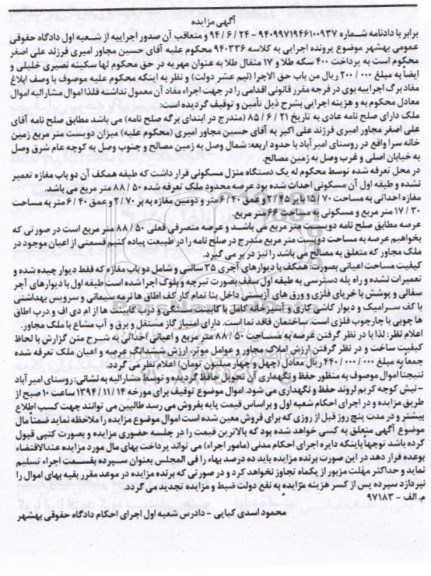 آگهی مزایده
برابر با دادنامه شماره ۹۴۰۹۹۷۱۹۴۶۱۰۰۹۳۷ - ۹۴/۶/۲۴ و متعاقب آن صدور اجراییه از شعبه اول دادگاه حقوقی
عمومی بهشهر موضوع پرونده اجرایی به کلاسه ۹۴۰۳۳۶ محکوم علیه آقای حسین مجاور امیری فرزند علی اصغر
محکوم است به پرداخت ۴۰۰ سکه طلا و ۱۷ مثقال طلا به عنوان مهریه در حق محکوم لها سکینه نصیری خلیلی و
ایضا به مبلغ ۲۰۰/۰۰۰ ریال من باب حق الاجرا (نیم عشر دولت) و نظر به اینکه محکوم علیه موصوف با وصف ابلاغ
مفاد برگ اجراییه بوی در فرجه مقرر قانونی اقدامی را در جهت اجراء مفاد آن معمول نداشته فلذا اموال مشارالیه اموال
معادل محکوم به و هزینه اجرایی بشرح ذیل تأمین و توقیف گردیده است:
ملک دارای صلح نامه عادی به تاریخ ۸۵/۶/۲۱ (مندرج در ابتدای برگه صلح نامه) می باشد مطابق صلح نامه آقای
علی اصغر مجاور امیری فرزند علی اکبر به آقای حسین مجاور امیری (محکوم علیه) میزان دویست متر مربع زمین
خانه سرا واقع در روستای امیرآباد با حدود اربعه: شمال وصل به زمین مصالح و جنوب وصل به کوچه عام شرق وصل
به خیابان اصلی و غرب وصل به زمین مصالح.
در محل تعرفه شده توسط محکوم له یک دستگاه منزل مسکونی قرار داشت که طبقه همکف آن دو باب مغازه تعمیر
نشده و طبقه اول آن مسکونی احداث شده بود عرصه محدود ملک تعرفه شده ۸۸/۵۰ متر مربع می باشد.
مغازه احداثی به مساحت ۱۵/۷۰ با بر ۲/۴۵ و عمق ۶/۴۰ متر و دومین مغازه به بر ۲/۷۰ و عمق ۶/۴۰ متر به مساحت
۱۷/۳۰ متر مربع و مسکونی به مساحت ۶۶ متر مربع.
عرصه مطابق صلح نامه دویست متر مربع می باشید و عرصه متصرفی فعلی ۸۸/۵۰ متر مربع است در صورتی که
بخواهیم عرصه به مساحت دویست متر مربع مندرج در صلح نامه را در طبیعت پیاده کنیم قسمتی از اعیان موجود در
ملک مجاور که متعلق به مصالح می باشد را نیز در بر می گیرد.
کیفیت مساحت اعیانی بصورت: همکف با دیوارهای آجری ۳۵ سانتی و شامل دو باب مغازه که فقط دیوار چیده شده و
تعمیرات نشده و راه پله دسترسی به طبقه اول سقف بصورت تیرچه و بلوک اجرا شده است طبقه اول با دیوارهای آجر
سفالی و پوشش با خرپای فلزی و ورق های آزبستی داخل بنا تمام کار کف اطاق ها نرمه سیمانی و سرویس بهداشتی
با کف سرامیک و دیوار کاشی کاری و آشپزخانه کامل با کابینت سنگی و درب کابینت ها از ام دی اف و درب اطاق
ها چوبی با چارچوب فلزی است. ساختمان فاقد نما است. دارای امتیاز گاز مستقل و برق و آب مشاع با ملک مجاور.
اعلام نظر: لذا با در نظر گرفتن عرصه به مساحت ۸۸/۵۰ متر مربع و اعیانی احداثی به شرح متن گزارش با لحاظ
کیفیت ساخت و در نظر گرفتن ارزش املاک مجاور و عوامل موثر، ارزش ششدانگ عرصه و اعیان ملک تعرفه شده
جمعاً به مبلغ ۴۴۰/۰۰۰/۰۰۰ ریال معادل (چهل و چهار میلیون تومان) اعلام نظر می گردد.
نتیجتا اموال موصوف به منظور حفظ و نگهداری آن تحویل حافظ گردیده و توسط مشارالیه به نشانی: روستای امیرآباد
- نبش کوچه کریم لروند حفظ و نگهداری می شود. اموال موضوع توقیف برای مورخه ۱۳۹۴/۱۱/۱۴ ساعت ۱۰ صبح از
طریق مزایده و در اجرای احکام شعبه اول و براساس قیمت پایه بفروش می رسد طالبین می توانند جهت کسب اطلاع
بیشتر و در مدت پنج روز قبل از روزی که برای فروش معین شده است اموال موضوع مزایده را ملاحظه نماید ضمناً مال
موضوع آگهی متعلق به کسی خواهد شد که بالاترین قیمت را در جلسه حضوری مزایده و بصورت کتبی قبول
کرده باشد توجهاً باینکه دایره اجرای احکام مدنی (مامور اجراء) می تواند پرداخت بهای مال مورد مزایده عندالاقتضاء
بوعده قرار دهد در این صورت برنده مزایده باید ده درصد بهاء را فی المجلس بعنوان سپرده بقسمت اجراء تسلیم
نماید و حداکثر مهلت مزبور از یکماه تجاوز نخواهد کرد و در صورتی که برنده مزایده در موعد مقرر بقیه بهای اموال را
نپردازد سپرده پس از کسر هزینه مزایده به نفع دولت ضبط و مزایده تجدید می گردد.
م. الف - ۹۷۱۸۳
محمود اسدی کیایی - دادرس شعبه اول اجرای احکام دادگاه حقوقی بهشهر